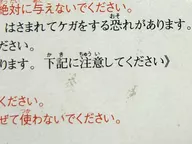 絶対に与えないでください。
はさまれてケガをする恐れがあります。
ださい。
ります。下記に注意してください》
ください。
ぜて使わないでください。